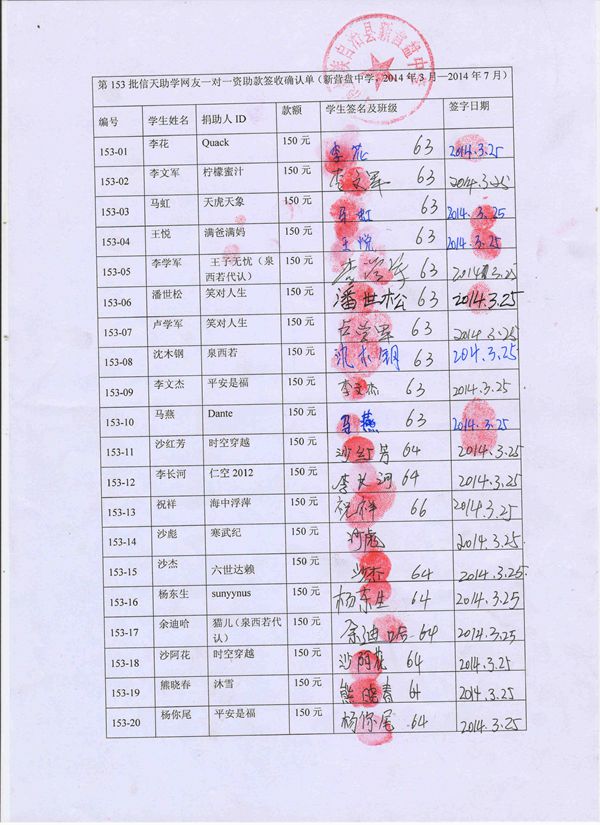 族自治县新营盘中
第 153 批信天助学网友一对一资助款签收确认单（新营盘中学，2014 年 3 月—2014 年 7 月）
编号 学生姓名 捐助人 ID 款额 学生签名及班级 签字日期
153-01 李花 Quack 150 元 李花 63 2014.3.25
153-02 李文军 柠檬蜜汁 150 元 李文军 63 2014.3.25
153-03 马虹 天虎天象 150 元 马虹 63 2014.3.25
153-04 王悦 满爸满妈 150 元 王悦 63 2014.3.25
153-05 李学军 王子无忧（泉 150 元 李学军 63 2014.3.25
西若代认）
153-06 潘世松 笑对人生 150 元 潘世松 63 2014.3.25
153-07 卢学军 笑对人生 150 元 卢学军 63 2014.3.25
153-08 沈木钢 泉西若 150 元 沈木钢 63 2014.3.25
153-09 李文杰 平安是福 150 元 李文杰 63 2014.3.25
153-10 马燕 Dante 150 元 马燕 63 2014.3.25
153-11 沙红芳 时空穿越 150 元 沙红芳 64 2014.3.25
153-12 李长河 仁空 2012 150 元 李长河 64 2014.3.25
153-13 祝祥 海中浮萍 150 元 祝祥 66 2014.3.25
153-14 沙彪 寒武纪 150 元 沙彪 2014.3.25
153-15 沙杰 六世达赖 150 元 沙杰 64 2014.3.25
153-16 杨东生 sunyynus 150 元 杨东生 64 2014.3.25
153-17 余迪哈 猫儿（泉西若代 150 元 余迪哈 64 2014.3.25
认）
153-18 沙阿花 时空穿越 150 元 沙阿花 64 2014.3.25
153-19 熊晓春 沐雪 150 元 熊晓春 64 2014.3.25
153-20 杨你尾 平安是福 150 元 杨你尾 64 2014.3.25